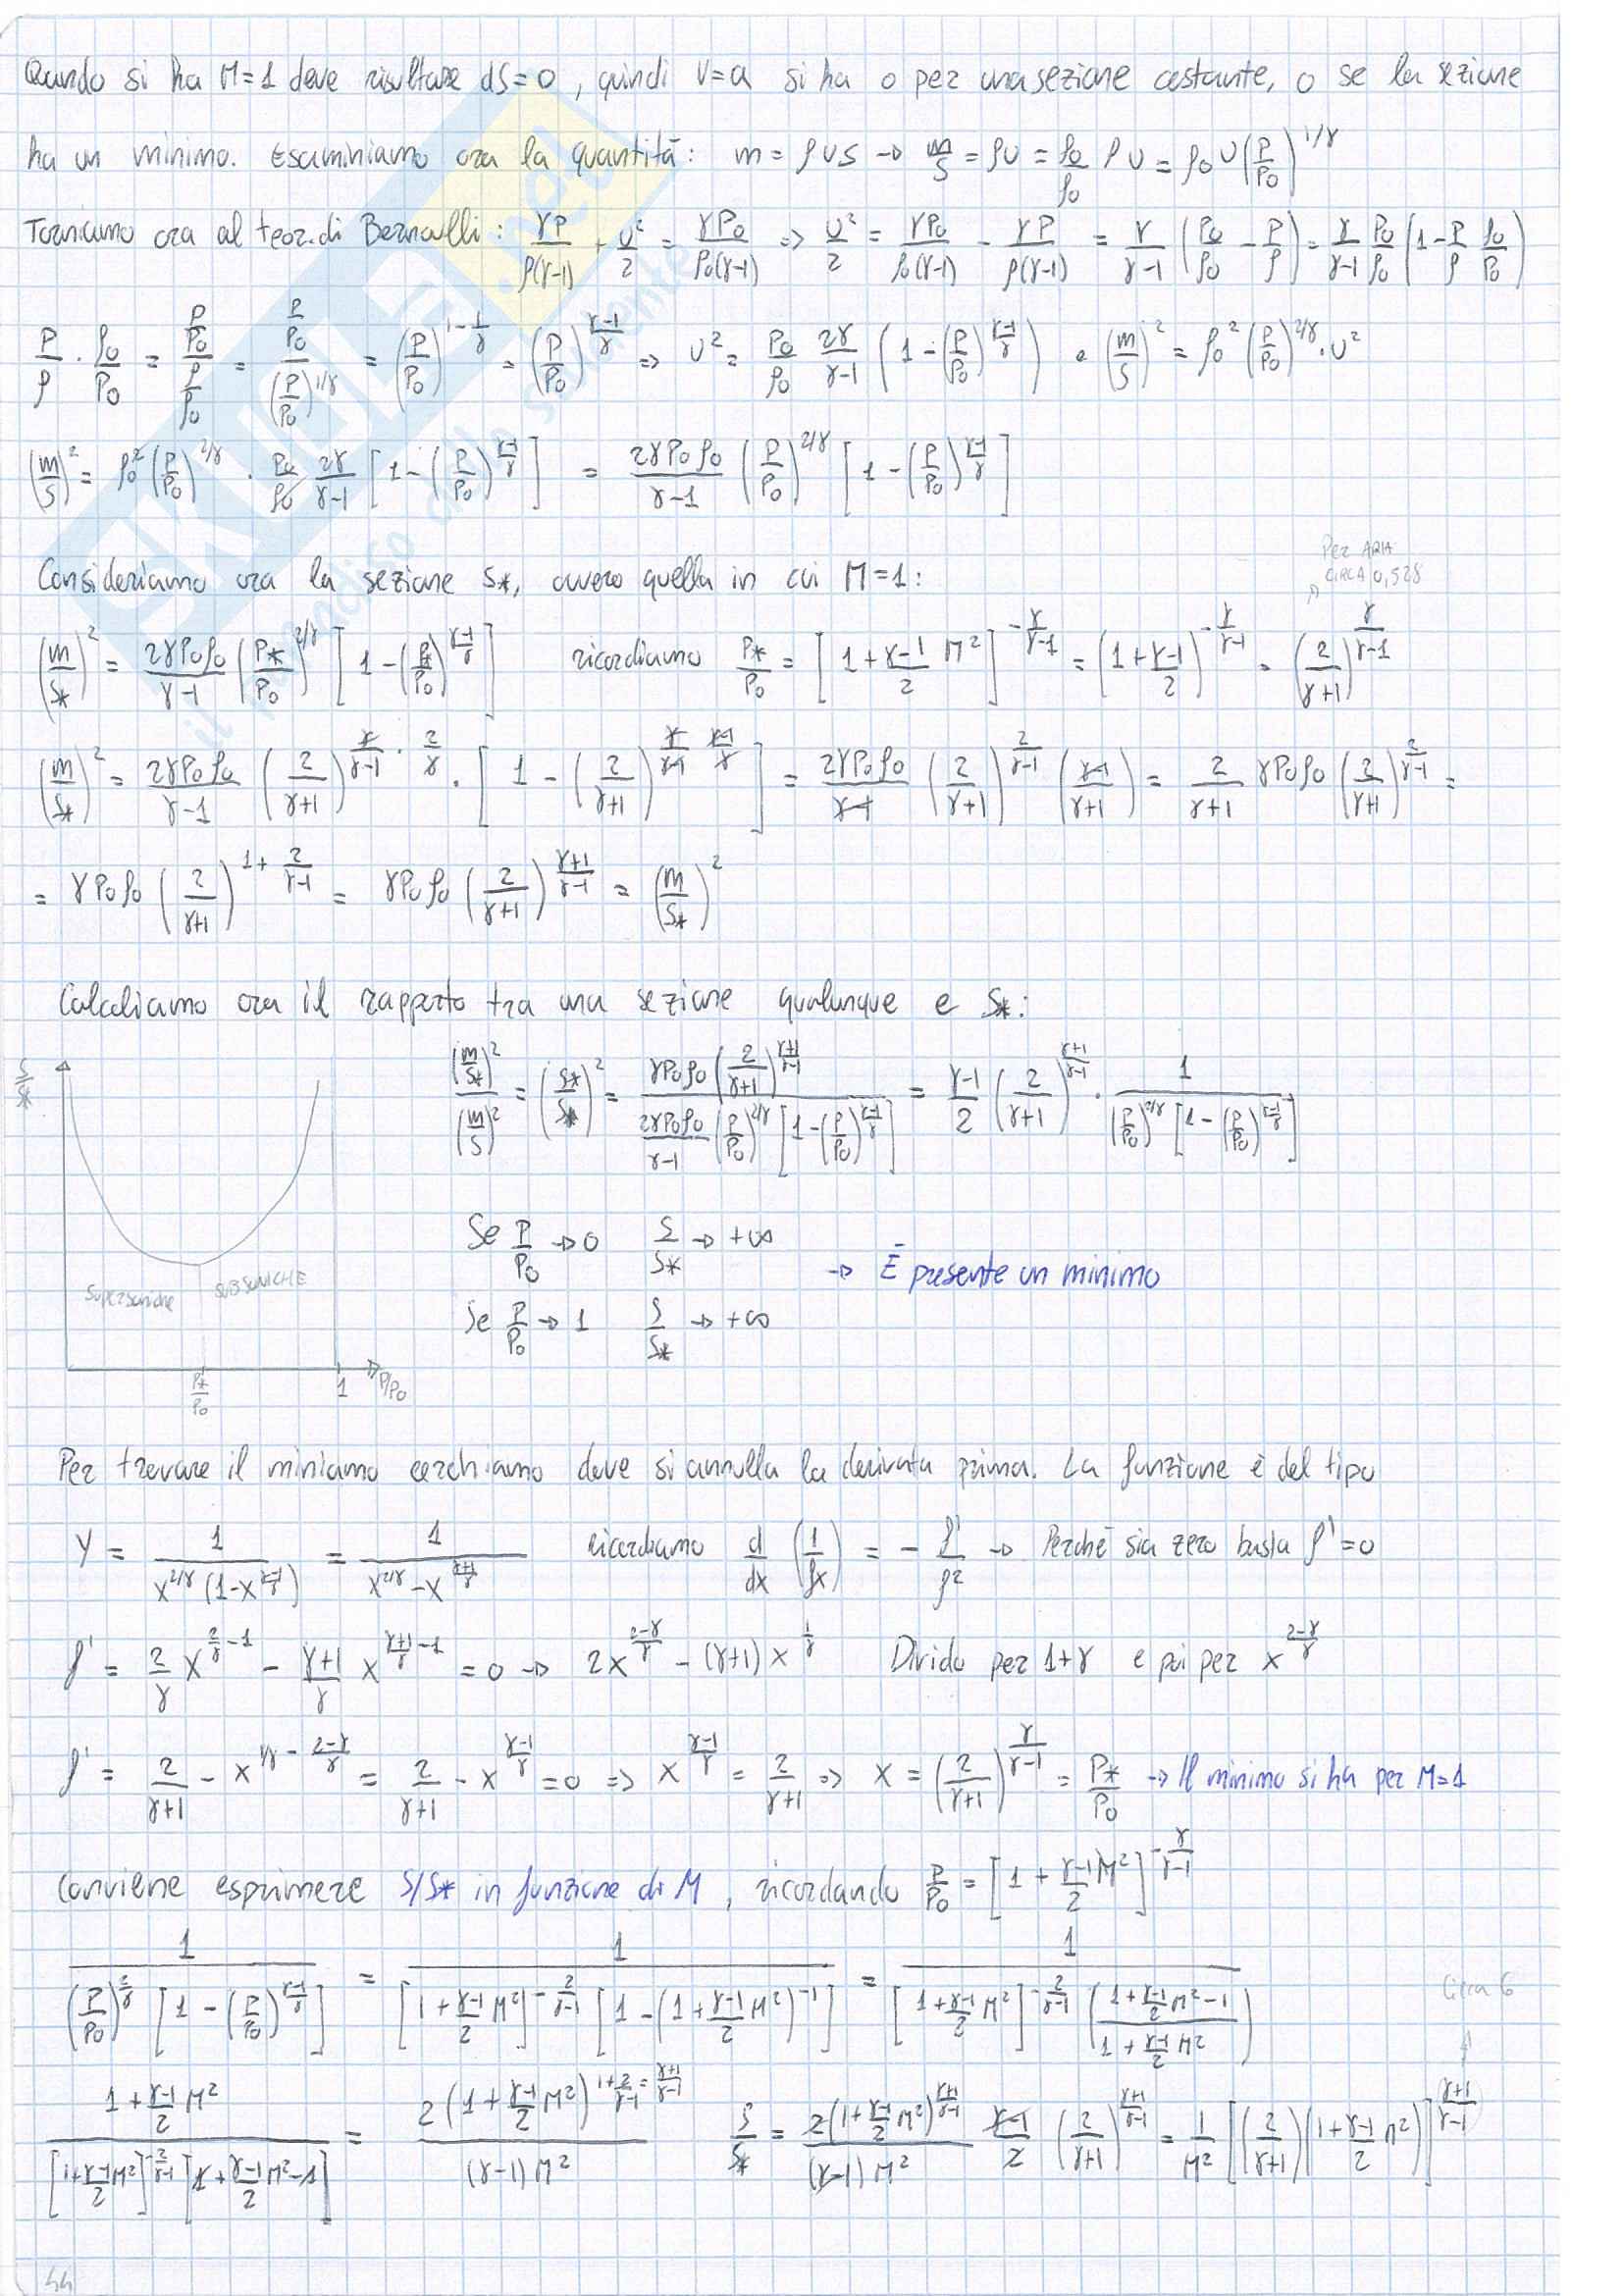 Quando si ha M=1 deve risultare dS=0, quindi V=a si ha o per una sezione costante, o se la sezione
ha un minimo. Esaminiamo ora la quantità: m = ρUS → m/S = ρU = ρ0/ρ0 ρ U = ρ0 U (P/P0)^1/γ
Torniamo ora al teor. di Bernoulli: γP/ρ(γ-1) + U²/2 = γP0/ρ0(γ-1) ⇒ U²/2 = γP0/ρ0(γ-1) - γP/ρ(γ-1) = γ/γ-1 (P0/ρ0 - P/ρ) = γ/γ-1 P0/ρ0 (1 - P/ρ ρ0/P0)
P/ρ · ρ0/P0 = (P/P0)/(ρ/ρ0) = (P/P0)/(P/P0)^1/γ = (P/P0)^(1-1/γ) = (P/P0)^(γ-1/γ) ⇒ U² = P0/ρ0 2γ/γ-1 (1 - (P/P0)^(γ-1/γ)) e (m/S)² = ρ0² (P/P0)^2/γ · U²
(m/S)² = ρ0² (P/P0)^2/γ · P0/ρ0 2γ/γ-1 [1 - (P/P0)^(γ-1/γ)] = 2γP0ρ0/γ-1 (P/P0)^2/γ [1 - (P/P0)^(γ-1/γ)]
Per ARIA
CIRCA 0,528
Consideriamo ora la sezione S*, ovvero quella in cui M=1:
(m/S*)² = 2γP0ρ0/γ-1 (P*/P0)^2/γ [1 - (P*/P0)^(γ-1/γ)] ricordiamo P*/P0 = [1 + γ-1/2 M²]^(-γ/γ-1) = (1 + γ-1/2)^(-γ/γ-1) = (2/γ+1)^(γ/γ-1)
(m/S*)² = 2γP0ρ0/γ-1 (2/γ+1)^(γ/γ-1 · 2/γ) · [1 - (2/γ+1)^(γ/γ-1 γ-1/γ)] = 2γP0ρ0/γ-1 (2/γ+1)^(2/γ-1) (γ-1/γ+1) = 2/γ+1 γP0ρ0 (2/γ+1)^(2/γ-1) =
= γP0ρ0 (2/γ+1)^(1+2/γ-1) = γP0ρ0 (2/γ+1)^(γ+1/γ-1) = (m/S*)²
Calcoliamo ora il rapporto tra una sezione qualunque e S*:
(m/S*)²/(m/S)² = (S*/S*)² = γP0ρ0 (2/γ+1)^(γ+1/γ-1) / 2γP0ρ0/γ-1 (P/P0)^2/γ [1 - (P/P0)^(γ-1/γ)] = γ-1/2 (2/γ+1)^(γ+1/γ-1) · 1/(P/P0)^2/γ [1 - (P/P0)^(γ-1/γ)]
S/S*
Supersoniche
SUBSONICHE
P*/P0
1
P/P0
Se P/P0 → 0 S/S* → +∞
→ È presente un minimo
Se P/P0 → 1 S/S* → +∞
Per trovare il miniamo cerchiamo dove si annulla la derivata prima. La funzione è del tipo
Y = 1/x^2/γ (1-x^(γ-1/γ)) = 1/x^2/γ - x^(γ+1/γ) ricordiamo d/dx (1/fx) = - f'/f² → Perché sia zero basta f'=0
f' = 2/γ x^(2/γ-1) - γ+1/γ x^(γ+1/γ-1) = 0 → 2x^(2-γ/γ) - (γ+1) x^1/γ Divido per 1+γ e poi per x^(2-γ/γ)
f' = 2/γ+1 - x^(1/γ - 2-γ/γ) = 2/γ+1 - x^(γ-1/γ) = 0 ⇒ x^(γ-1/γ) = 2/γ+1 ⇒ x = (2/γ+1)^(γ/γ-1) = P*/P0 → Il minimo si ha per M=1
Conviene esprimere S/S* in funzione di M, ricordando P/P0 = [1 + γ-1/2 M²]^(-γ/γ-1)
1/(P/P0)^2/γ [1 - (P/P0)^(γ-1/γ)] = 1/[1 + γ-1/2 M²]^(-2/γ-1) [1 - (1 + γ-1/2 M²)^-1] = 1/[1 + γ-1/2 M²]^(-2/γ-1) (1 + γ-1/2 M² - 1/1 + γ-1/2 M²)
Circa 6
1 + γ-1/2 M²/[1 + γ-1/2 M²]^(-2/γ-1) [1 + γ-1/2 M² - 1] = 2(1 + γ-1/2 M²)^(1+2/γ-1 = γ+1/γ-1)/(γ-1) M² S/S* = 2(1 + γ-1/2 M²)^(γ+1/γ-1)/(γ-1) M² γ-1/2 (2/γ+1)^(γ+1/γ-1) = 1/M² [(2/γ+1)(1 + γ-1/2 M²)]^(γ+1/γ-1)
44